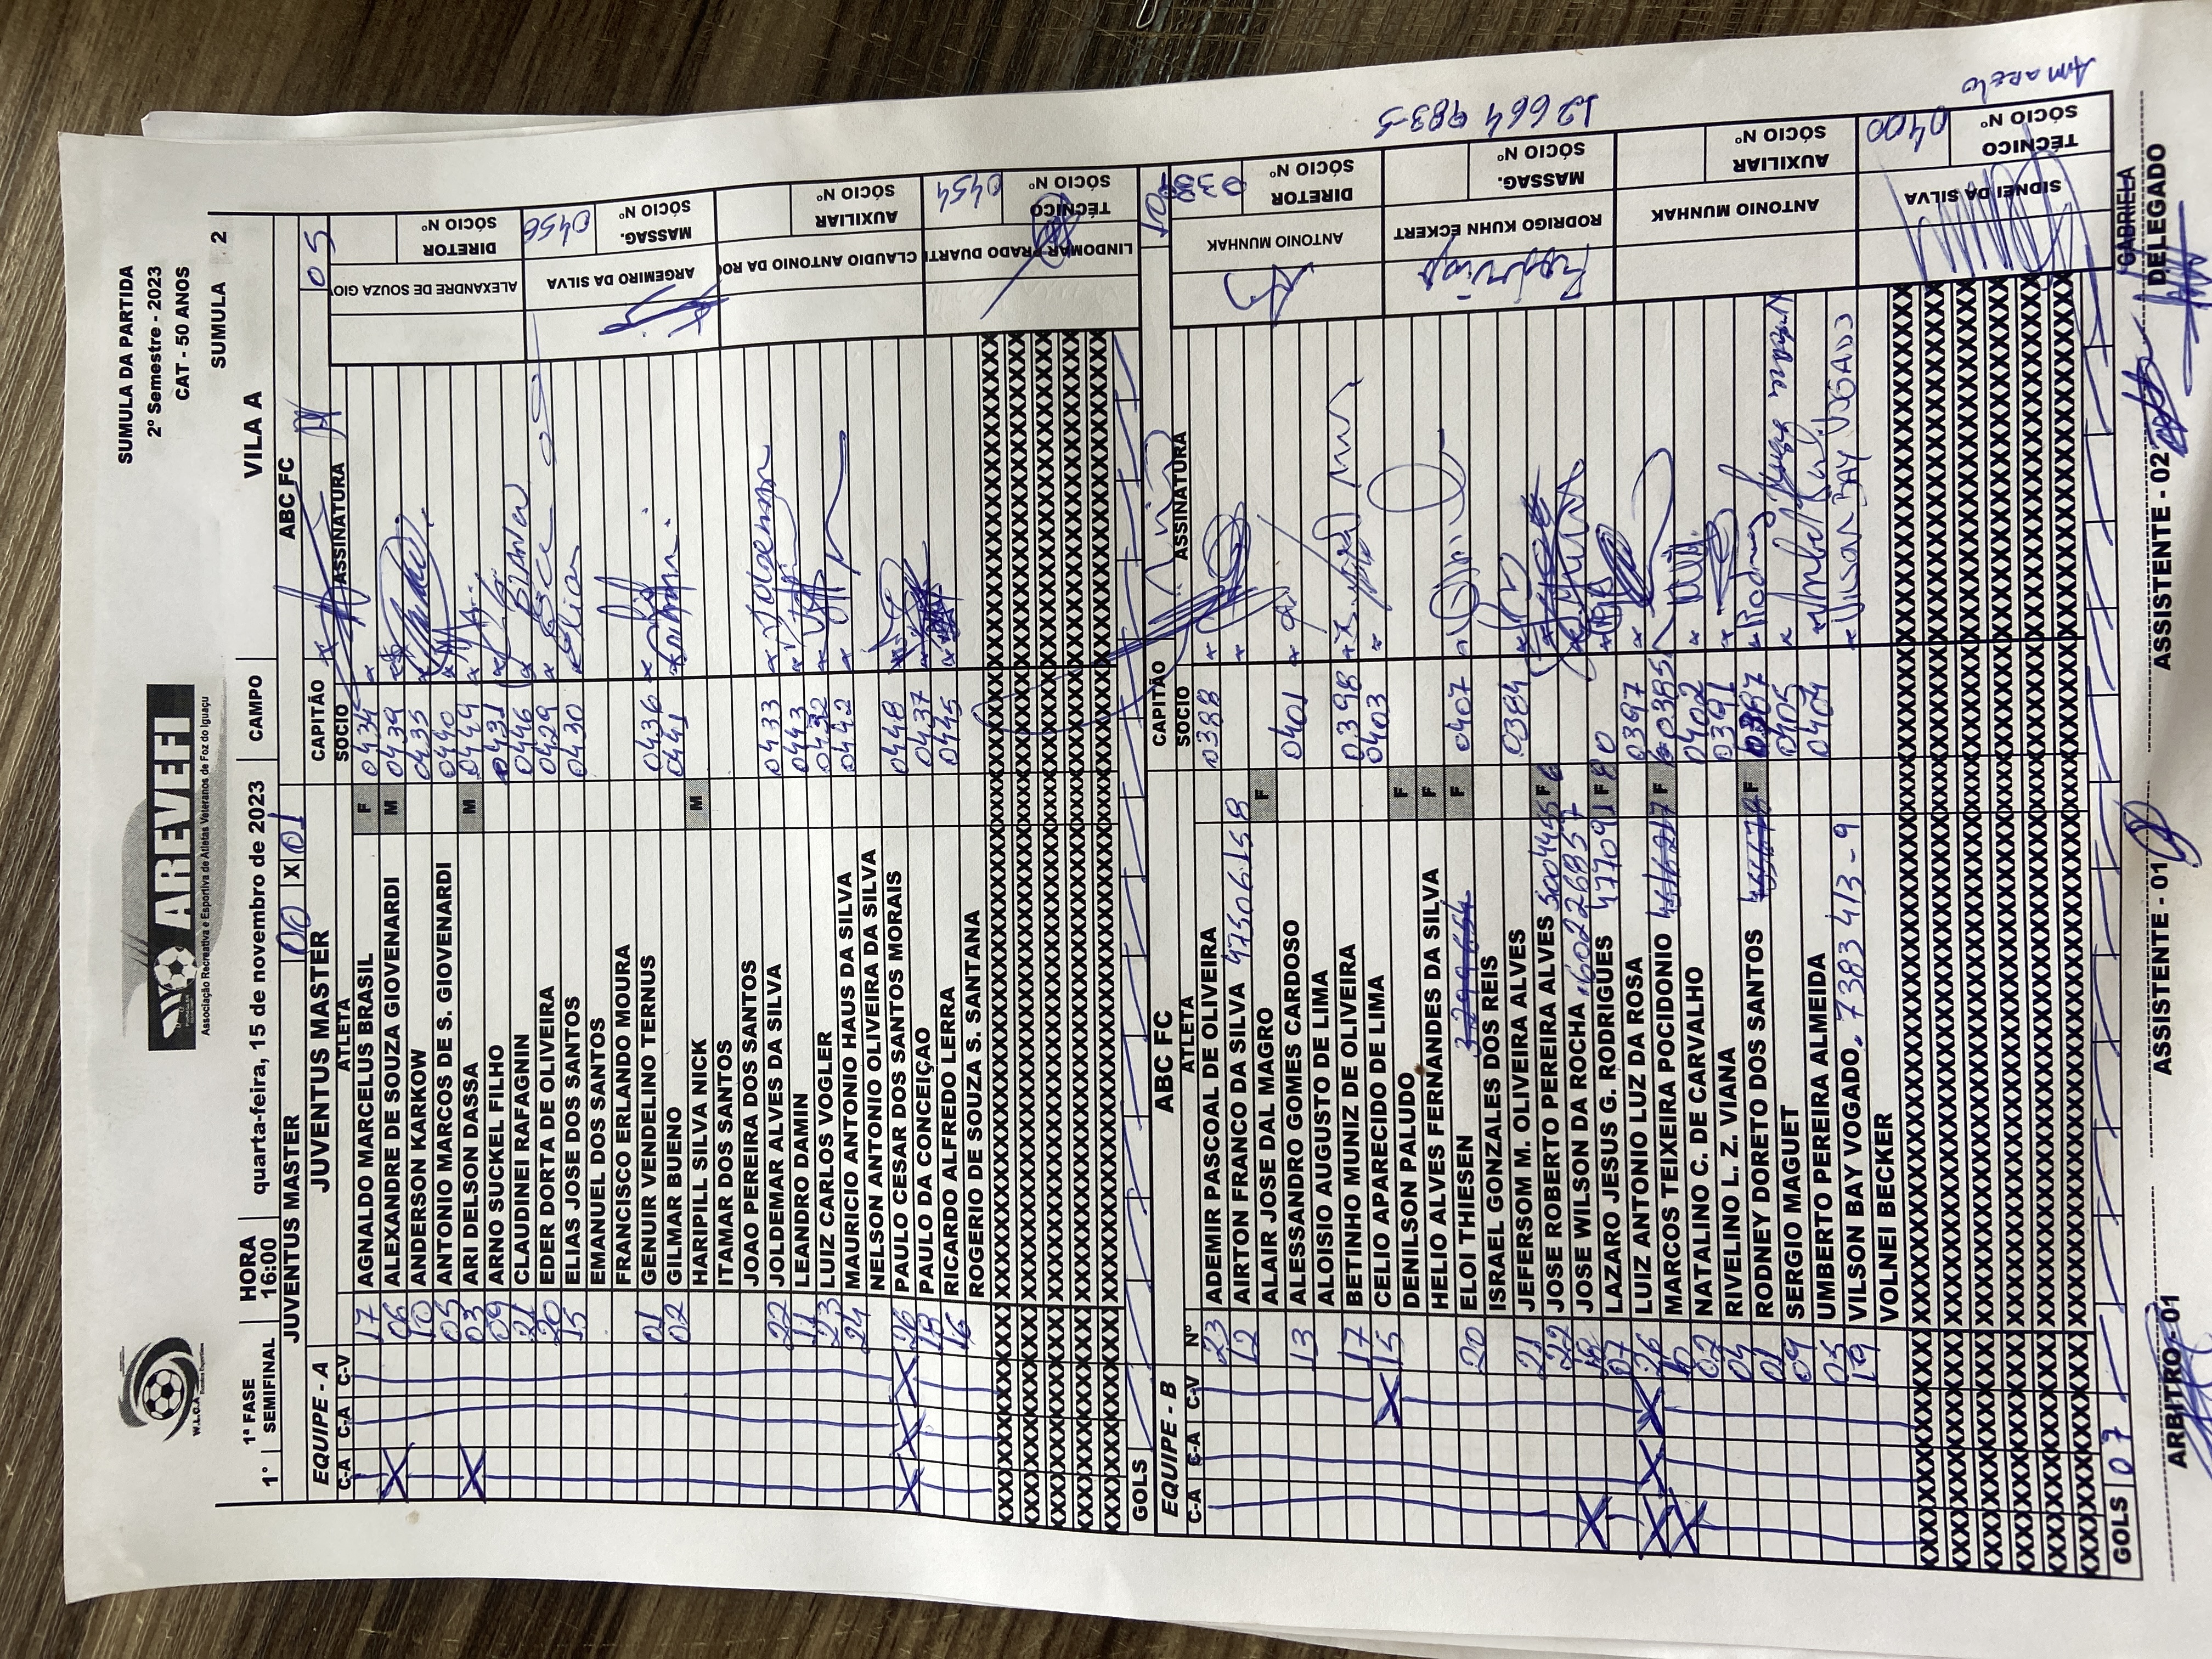 W.L.O.A
AREVEFI
Associação Recreativa e Esportiva de Atletas Veteranos de Foz do Iguaçu
SUMULA DA PARTIDA
2º Semestre - 2023
CAT - 50 ANOS
SUMULA 2
1º 1ª FASE SEMIFINAL HORA 16:00 quarta-feira, 15 de novembro de 2023 CAMPO VILA A
JUVENTUS MASTER 00 X 01 ABC FC
EQUIPE - A JUVENTUS MASTER CAPITÃO 05
C-A C-A C-V ATLETA SOCIO ASSINATURA
17 AGNALDO MARCELUS BRASIL F 0434
06 ALEXANDRE DE SOUZA GIOVENARDI M 0439
10 ANDERSON KARKOW 0435
05 ANTONIO MARCOS DE S. GIOVENARDI 0440
03 ARI DELSON DASSA M 0449
09 ARNO SUCKEL FILHO 0431
21 CLAUDINEI RAFAGNIN 0446
20 EDER DORTA DE OLIVEIRA 0429
15 ELIAS JOSE DOS SANTOS 0430 Elias
EMANUEL DOS SANTOS
FRANCISCO ERLANDO MOURA
01 GENUIR VENDELINO TERNUS 0436
02 GILMAR BUENO 0441
HARIPILL SILVA NICK M
ITAMAR DOS SANTOS
JOAO PEREIRA DOS SANTOS
22 JOLDEMAR ALVES DA SILVA 0433 Joldemar
11 LEANDRO DAMIN 0443
23 LUIZ CARLOS VOGLER 0432
24 MAURICIO ANTONIO HAUS DA SILVA 0442
NELSON ANTONIO OLIVEIRA DA SILVA
26 PAULO CESAR DOS SANTOS MORAIS 0448
PAULO DA CONCEIÇAO 0437
16 RICARDO ALFREDO LERRA 0445
ROGERIO DE SOUZA S. SANTANA
GOLS
ALEXANDRE DE SOUZA GIO
DIRETOR
SÓCIO Nº
ARGEMIRO DA SILVA
MASSAG.
SÓCIO Nº
0456
CLAUDIO ANTONIO DA RO
AUXILIAR
SÓCIO Nº
LINDOMAR PRADO DUARTE
TÉCNICO
SÓCIO Nº
0454
EQUIPE - B ABC FC CAPITÃO
C-A C-A C-V Nº ATLETA SOCIO ASSINATURA
23 ADEMIR PASCOAL DE OLIVEIRA 0388
12 AIRTON FRANCO DA SILVA 4750615-8
ALAIR JOSE DAL MAGRO F
13 ALESSANDRO GOMES CARDOSO 0401
ALOISIO AUGUSTO DE LIMA
17 BETINHO MUNIZ DE OLIVEIRA 0398
15 CELIO APARECIDO DE LIMA 0403
DENILSON PALUDO F
HELIO ALVES FERNANDES DA SILVA F
20 ELOI THIESEN F 0407
ISRAEL GONZALES DOS REIS
21 JEFERSOM M. OLIVEIRA ALVES 0384
22 JOSE ROBERTO PEREIRA ALVES F
JOSE WILSON DA ROCHA
07 LAZARO JESUS G. RODRIGUES F
26 LUIZ ANTONIO LUZ DA ROSA 0397
MARCOS TEIXEIRA POCIDONIO F 0385
02 NATALINO C. DE CARVALHO 0402
04 RIVELINO L. Z. VIANA 0391
01 RODNEY DORETO DOS SANTOS F 0387
09 SERGIO MAGUET 0405
03 UMBERTO PEREIRA ALMEIDA 0404
19 VILSON BAY VOGADO 7383413-9 VILSON BAY VOGADO
VOLNEI BECKER
GOLS 07
ANTONIO MUNHAK
DIRETOR
SÓCIO Nº
RODRIGO KUHN ECKERT
MASSAG.
SÓCIO Nº
12664983-5
ANTONIO MUNHAK
AUXILIAR
SÓCIO Nº
SIDNEI DA SILVA
TÉCNICO
SÓCIO Nº
0400
Amarelo
ARBITRO - 01 ASSISTENTE - 01 ASSISTENTE - 02 GABRIELA DELEGADO